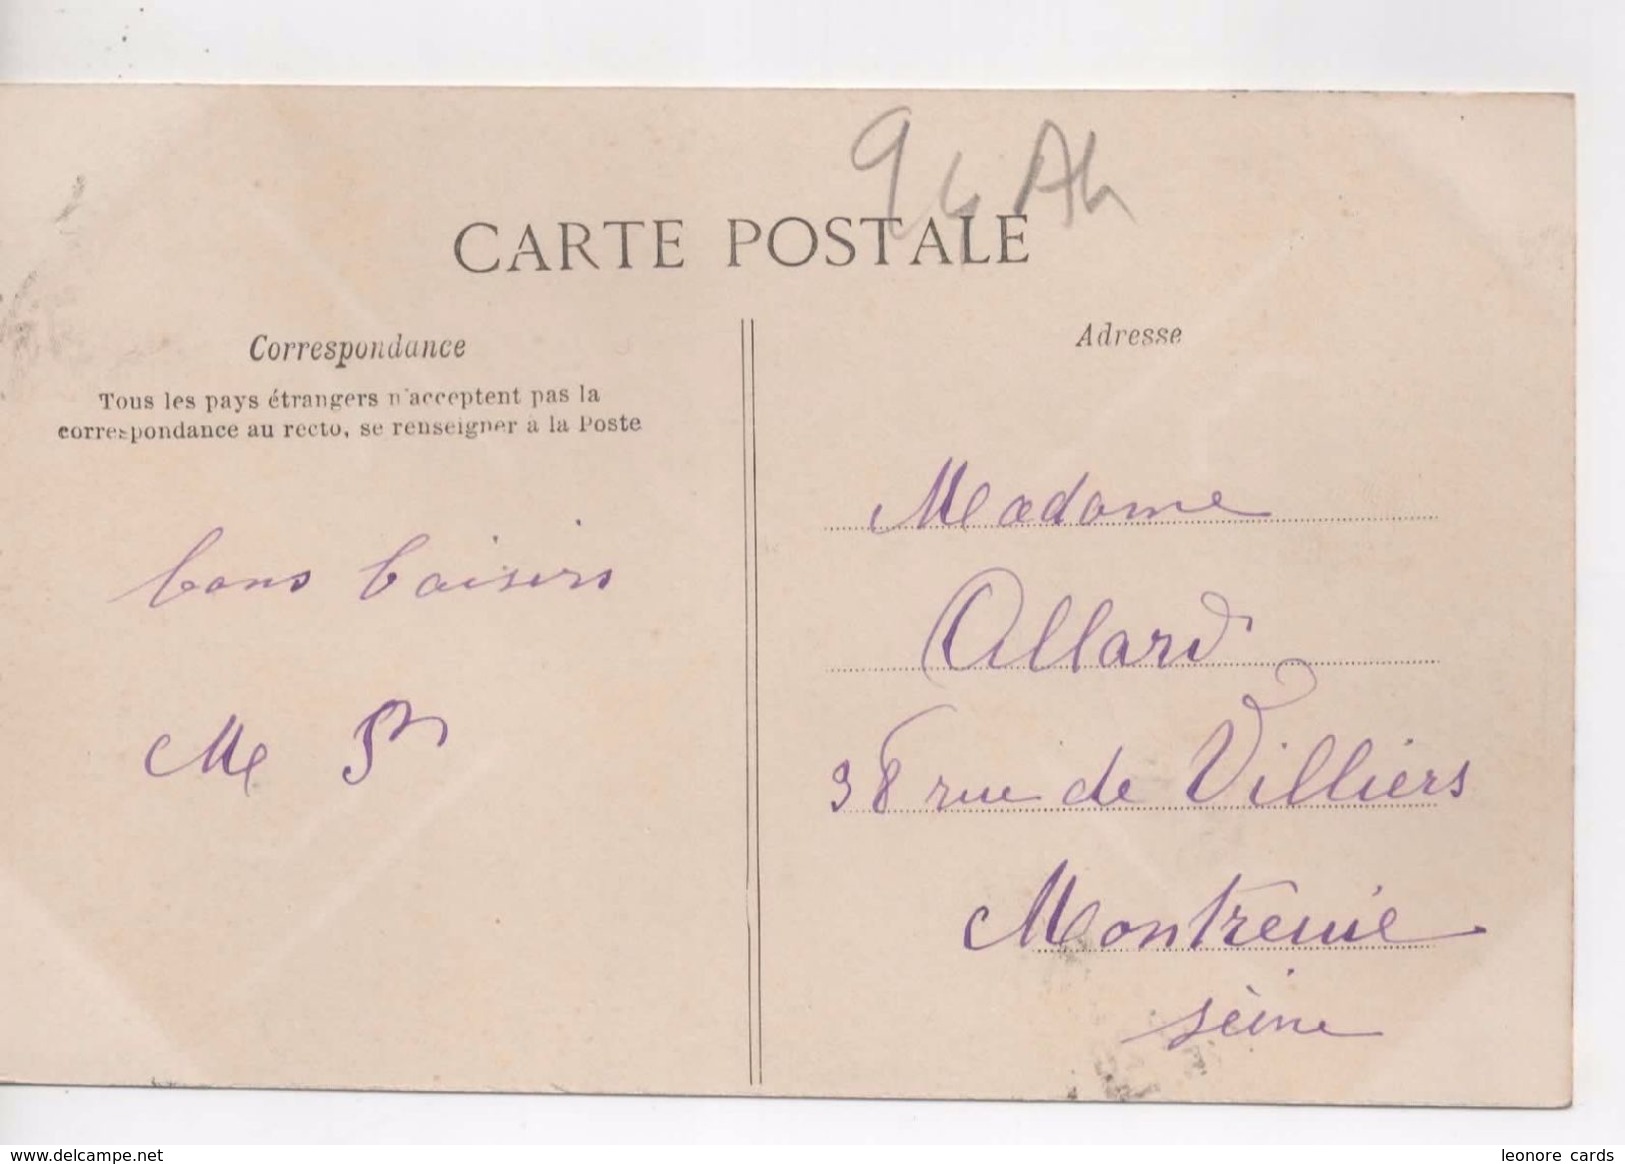 94
CARTE POSTALE
Correspondance
Tous les pays étrangers n'acceptent pas la
correspondance au recto, se renseigner à la Poste
bons baisers
Me
Adresse
Madame
Allard
38 rue de Villiers
Montreuie
Seine
www.delcampe.net
leonore cards